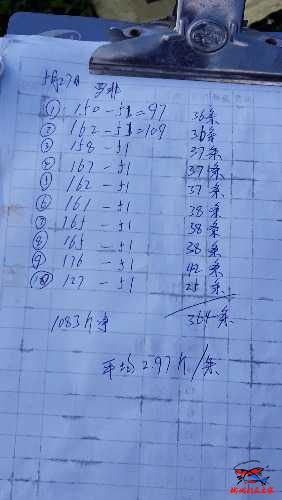 5月27日 罗非
① 150-53=97 36条
② 162-53=109 36条
③ 158-51 37条
④ 167-51 37条
⑤ 162-51 37条
⑥ 161-51 38条
⑦ 165-51 38条
⑧ 165-51 38条
⑨ 176-51 42条
⑩ 127-51 25条
1083斤净 364条
平均2.97斤/条